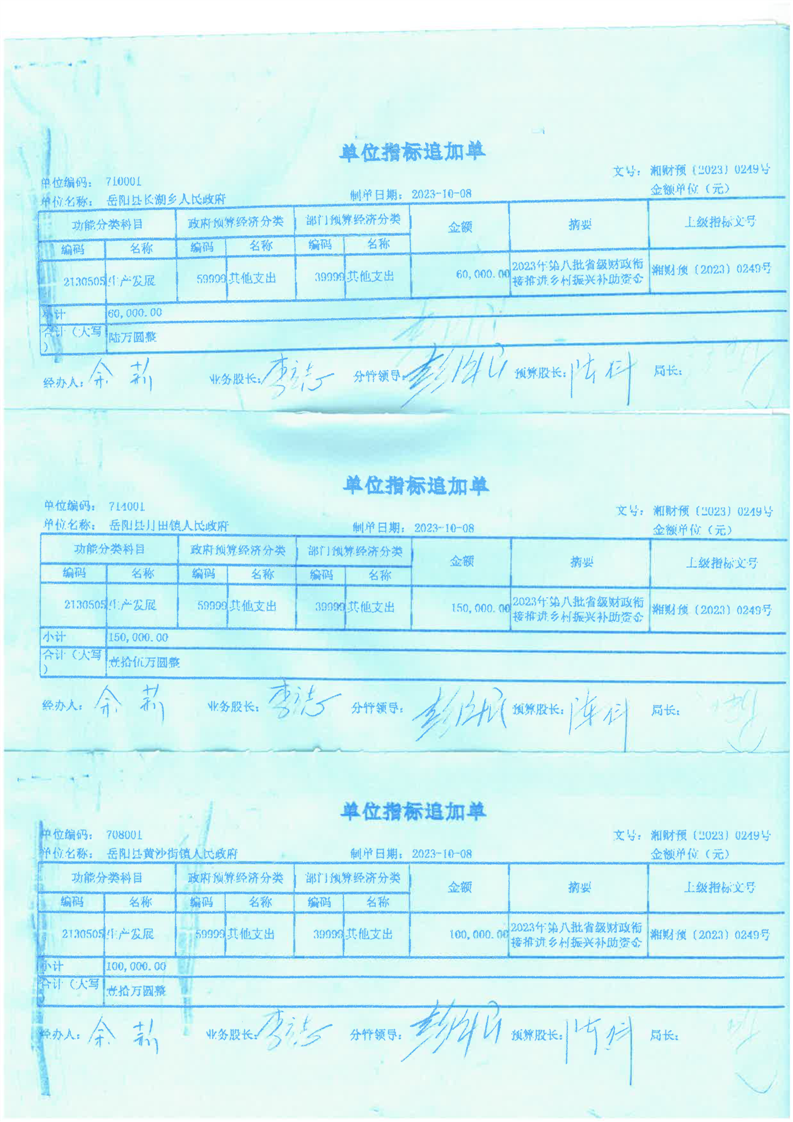 单位指标追加单
文号： 湘财预〔2023〕0249号
单位编码： 710001
单位名称： 岳阳县长湖乡人民政府 制单日期： 2023-10-08 金额单位（元）
功能分类科目 政府预算经济分类 部门预算经济分类 金额 摘要 上级指标文号
编码 名称 编码 名称 编码 名称
2130505 生产发展 59999 其他支出 39999 其他支出 60,000.00 2023年第八批省级财政衔接推进乡村振兴补助资金 湘财预〔2023〕0249号
小计 60,000.00
合计（大写） 陆万圆整
经办人： 余莉 业务股长： 分管领导： 预算股长： 局长：
单位指标追加单
单位编码： 714001 文号： 湘财预〔2023〕0249号
单位名称： 岳阳县月田镇人民政府 制单日期： 2023-10-08 金额单位（元）
功能分类科目 政府预算经济分类 部门预算经济分类 金额 摘要 上级指标文号
编码 名称 编码 名称 编码 名称
2130505 生产发展 59999 其他支出 39999 其他支出 150,000.00 2023年第八批省级财政衔接推进乡村振兴补助资金 湘财预〔2023〕0249号
小计 150,000.00
合计（大写） 壹拾伍万圆整
经办人： 余莉 业务股长： 分管领导： 预算股长： 局长：
单位指标追加单
单位编码： 708001 文号： 湘财预〔2023〕0249号
单位名称： 岳阳县黄沙街镇人民政府 制单日期： 2023-10-08 金额单位（元）
功能分类科目 政府预算经济分类 部门预算经济分类 金额 摘要 上级指标文号
编码 名称 编码 名称 编码 名称
2130505 生产发展 59999 其他支出 39999 其他支出 100,000.00 2023年第八批省级财政衔接推进乡村振兴补助资金 湘财预〔2023〕0249号
小计 100,000.00
合计（大写） 壹拾万圆整
经办人： 余莉 业务股长： 分管领导： 预算股长： 局长：